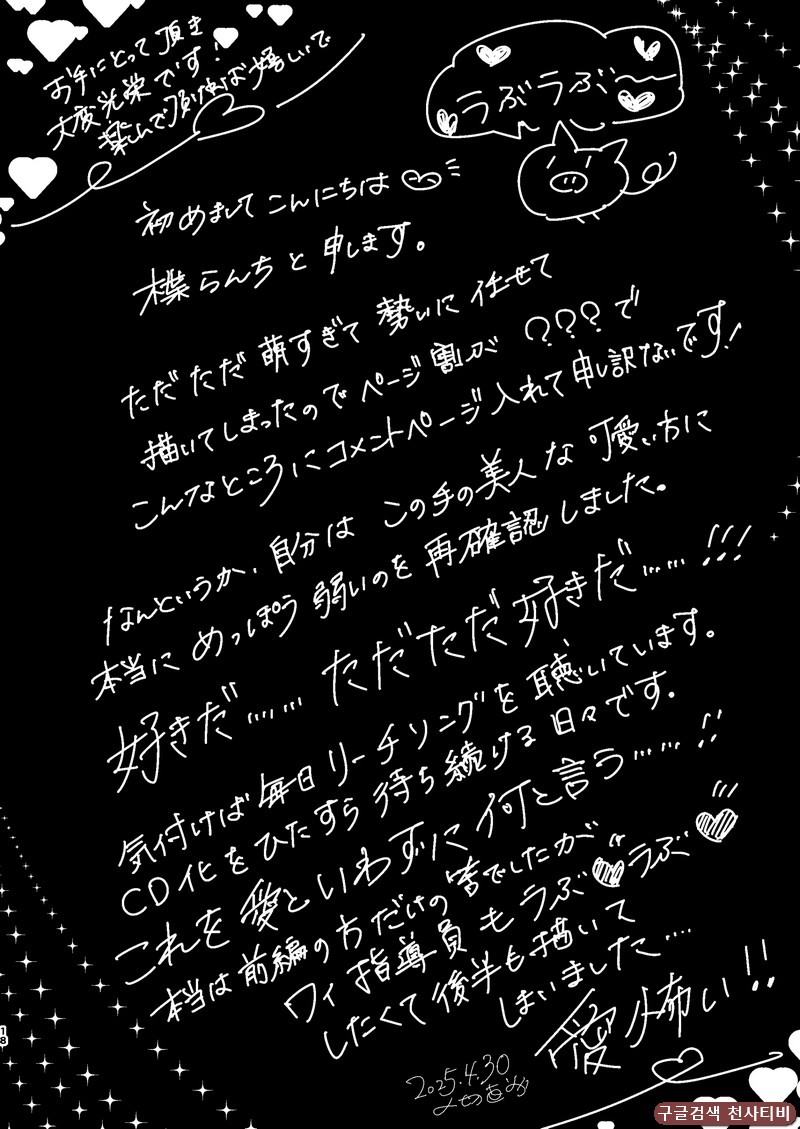 お手にとって頂き
大変光栄です!
楽しんで頂ければ嬉しいで
うぶうぶ〜
初めましてこんにちは
楪らんちと申します。
ただただ萌すぎて勢いに任せて
描いてしまったのでページ割が???で
こんなところにコメントページ入れて申し訳ないです!
なんというか、自分はこの手の美人な可愛い方に
本当にめっぽう弱いのを再確認しました。
好きだ……ただただ好きだ……!!!
気付けば毎日リーチソングを聴いています。
CD化をひたすら待ち続ける日々です。
これを愛といわずに何と言う……!!
本当は前編の方だけの筈でしたが
ワイ指導員もうぶ♥うぶ♥
したくて後半も描いて
しまいました….
愛怖い!!
2025.4.30
18
구글검색 천사티비